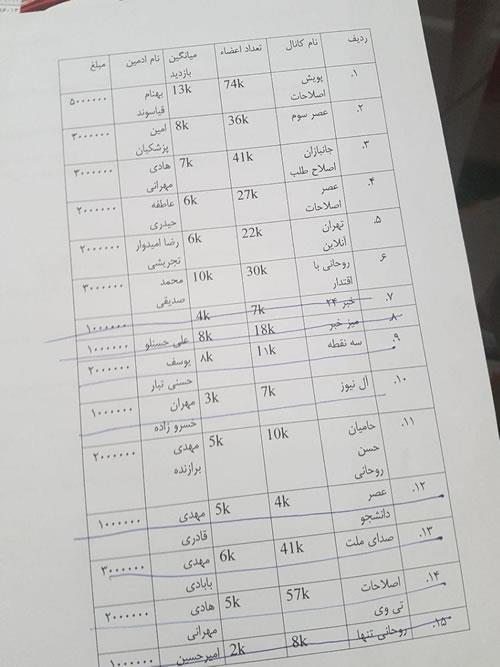 ردیف نام کانال تعداد اعضاء میانگین بازدید نام ادمین مبلغ
۱. پویش اصلاحات 74k 13k بهنام قیاسوند ۵۰۰۰۰۰۰
۲. عصر سوم 36k 8k امین پزشکیان ۳۰۰۰۰۰۰
۳. جانبازان اصلاح طلب 41k 7k هادی مهرانی ۳۰۰۰۰۰۰
۴. عصر اصلاحات 27k 6k عاطفه حیدری ۲۰۰۰۰۰۰
۵. تهران آنلاین 22k 6k رضا امیدوار تجریشی ۲۰۰۰۰۰۰
۶. روحانی با اقتدار 30k 10k محمد صدیقی ۳۰۰۰۰۰۰
۷. خبر ۲۴ 7k 4k ۱۰۰۰۰۰۰
۸. میز خبر 18k 8k علی حسنلو ۱۰۰۰۰۰۰
۹. سه نقطه ۱۱k ۸k یوسف حسنی تبار ۲۰۰۰۰۰۰
۱۰. ال نیوز 7k 3k مهران خسرو زاده ۱۰۰۰۰۰۰
۱۱. حامیان حسن روحانی 10k 5k مهدی برازنده ۲۰۰۰۰۰۰
۱۲. عصر دانشجو 4k 5k مهدی قادری ۱۰۰۰۰۰۰
۱۳. صدای ملت 41k 6k مهدی بابادی ۳۰۰۰۰۰۰
۱۴. اصلاحات تی وی 57k 5k هادی مهرانی ۲۰۰۰۰۰۰
۱۵. روحانی تنها 8k 2k امیرحسین ۱۰۰۰۰۰۰